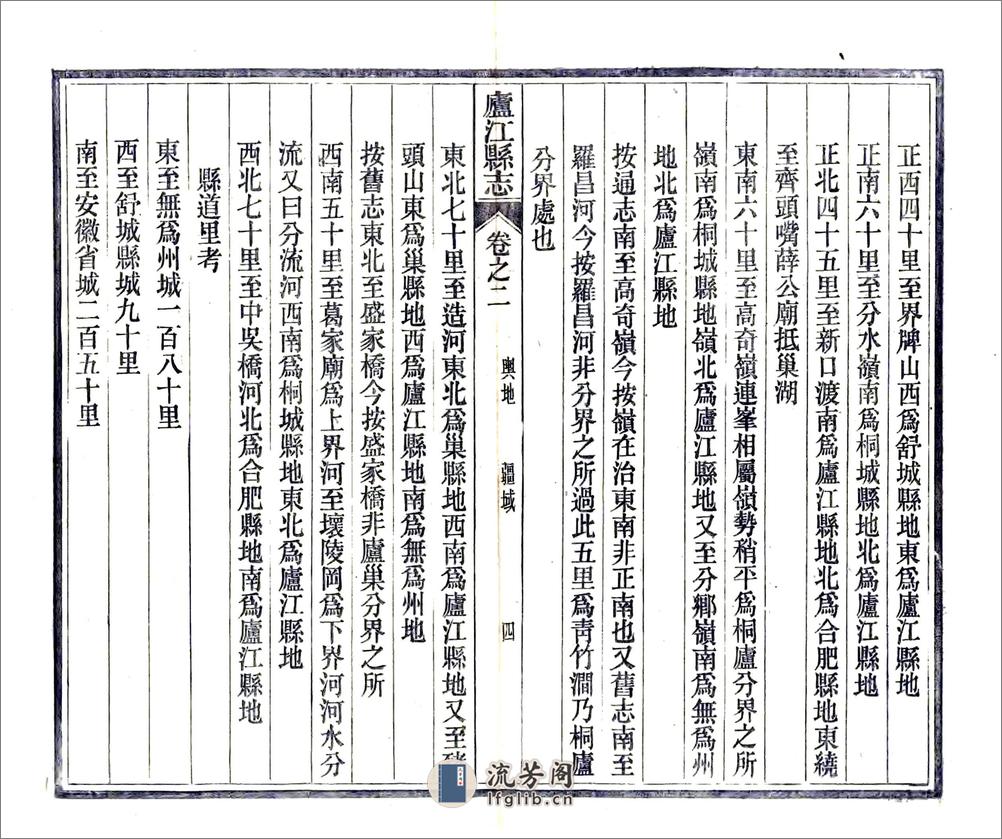 正西四十里至界牌山西爲舒城縣地東爲廬江縣地
正南六十里至分水嶺南爲桐城縣地北爲廬江縣地
正北四十五里至新口渡南爲廬江縣地北爲合肥縣地東繞
至齊頭嘴薛公廟抵巢湖
東南六十里至高奇嶺連峯相屬嶺勢稍平爲桐廬分界之所
嶺南爲桐城縣地嶺北爲廬江縣地又至分鄕嶺南爲無爲州
地北爲廬江縣地
按通志南至高奇嶺今按嶺在治東南非正南也又舊志南至
羅昌河今按羅昌河非分界之所過此五里爲靑竹澗乃桐廬
分界處也
廬江縣志 卷之二 輿地 疆域 四
東北七十里至造河東北爲巢縣地西南爲廬江縣地又至豬
頭山東爲巢縣地西爲廬江縣地南爲無爲州地
按舊志東北至盛家橋今按盛家橋非廬巢分界之所
西南五十里至葛家廟爲上界河至壞陵岡爲下界河河水分
流又曰分流河西南爲桐城縣地東北爲廬江縣地
西北七十里至中吳橋河北爲合肥縣地南爲廬江縣地
縣道里考
東至無爲州城一百八十里
西至舒城縣城九十里
南至安徽省城二百五十里
流芳阁
lfglib.cn